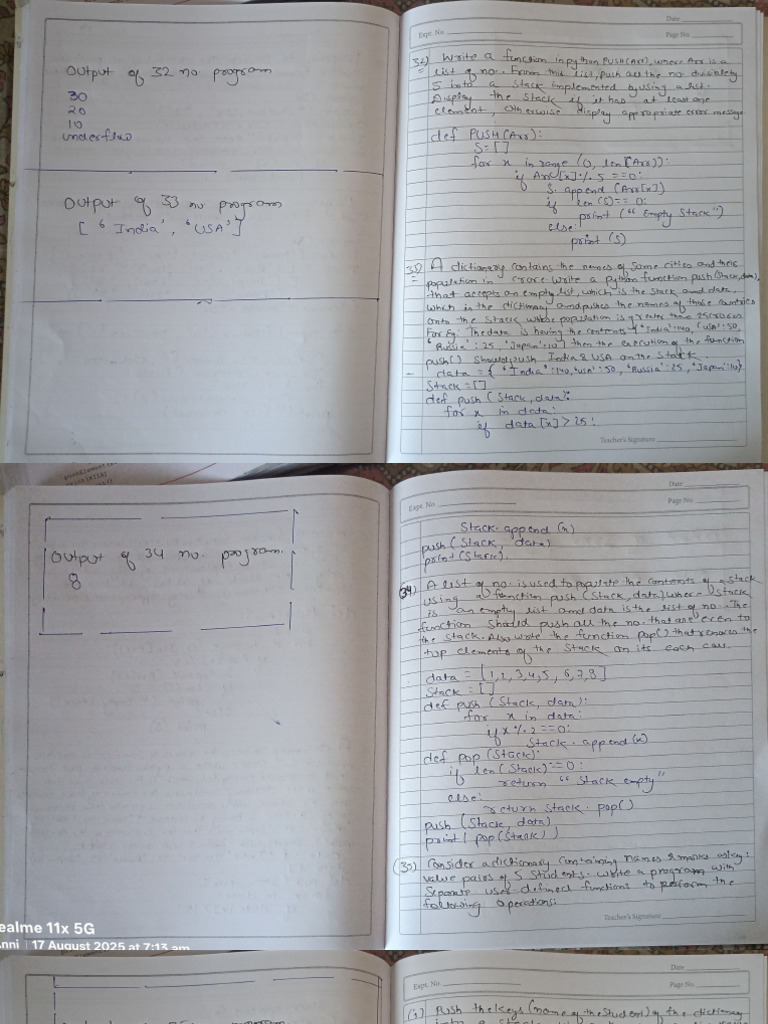 Output of 32 no program
30
20
10
underflow
Output of 33 no program
[ 'India', 'USA' ]
Date
Expt. No.
Page No.
32) Write a function in python PUSH(Arr), where Arr is a
list of no. From this list, push all the no divisible by
5 into a stack implemented by using a list.
Display the stack if it has at least one
element, otherwise display appropriate error message
def PUSH(Arr):
S=[]
for x in range (0, len(Arr)):
if Arr[x]%5==0:
S.append (Arr[x])
if len(S)==0:
print ("Empty Stack")
else:
print (S)
33) A dictionary contains the names of some cities and their
population in crore. Write a python function push(Stack,data),
that accepts an empty list, which is the stack and data,
which is the dictionary and pushes the names of those countries
onto the stack whose population is greater than 25 crores
For Eg: The data is having the contents {'India':140,'USA':50,
'Russia':25,'Japan':10} then the execution of the function
push() should push India & USA on the stack.
data = {'India':140,'USA':50,'Russia':25,'Japan':10}
Stack=[]
def push (Stack, data):
for x in data:
if data[x]>25:
Teacher's Signature
Output of 34 no. program.
8
Date
Expt. No.
Page No.
Stack.append (x)
push(Stack, data)
print(Stack).
34) A list of no. is used to populate the contents of a stack
using a function push (Stack, data) where stack
is an empty list and data is the list of no. The
function should push all the no. that are even to
the stack. Also write the function pop() that removes the
top elements of the stack on its each call.
data = [1,2,3,4,5,6,7,8]
Stack=[]
def push (Stack, data):
for x in data:
if x%2==0:
Stack.append(x)
def pop (Stack):
if len(Stack)==0:
return "Stack empty"
else:
return stack.pop()
push (Stack, data)
print(pop(Stack))
(35) Consider a dictionary containing names & marks as key:
value pairs of 5 students. Write a program with
separate user defined functions to perform the
following operations:
Teacher's Signature
realme 11x 5G
17 August 2025 at 7:13 am
Date
Expt. No.
Page No.
(1) Push the keys (name of the student) of the dictionary